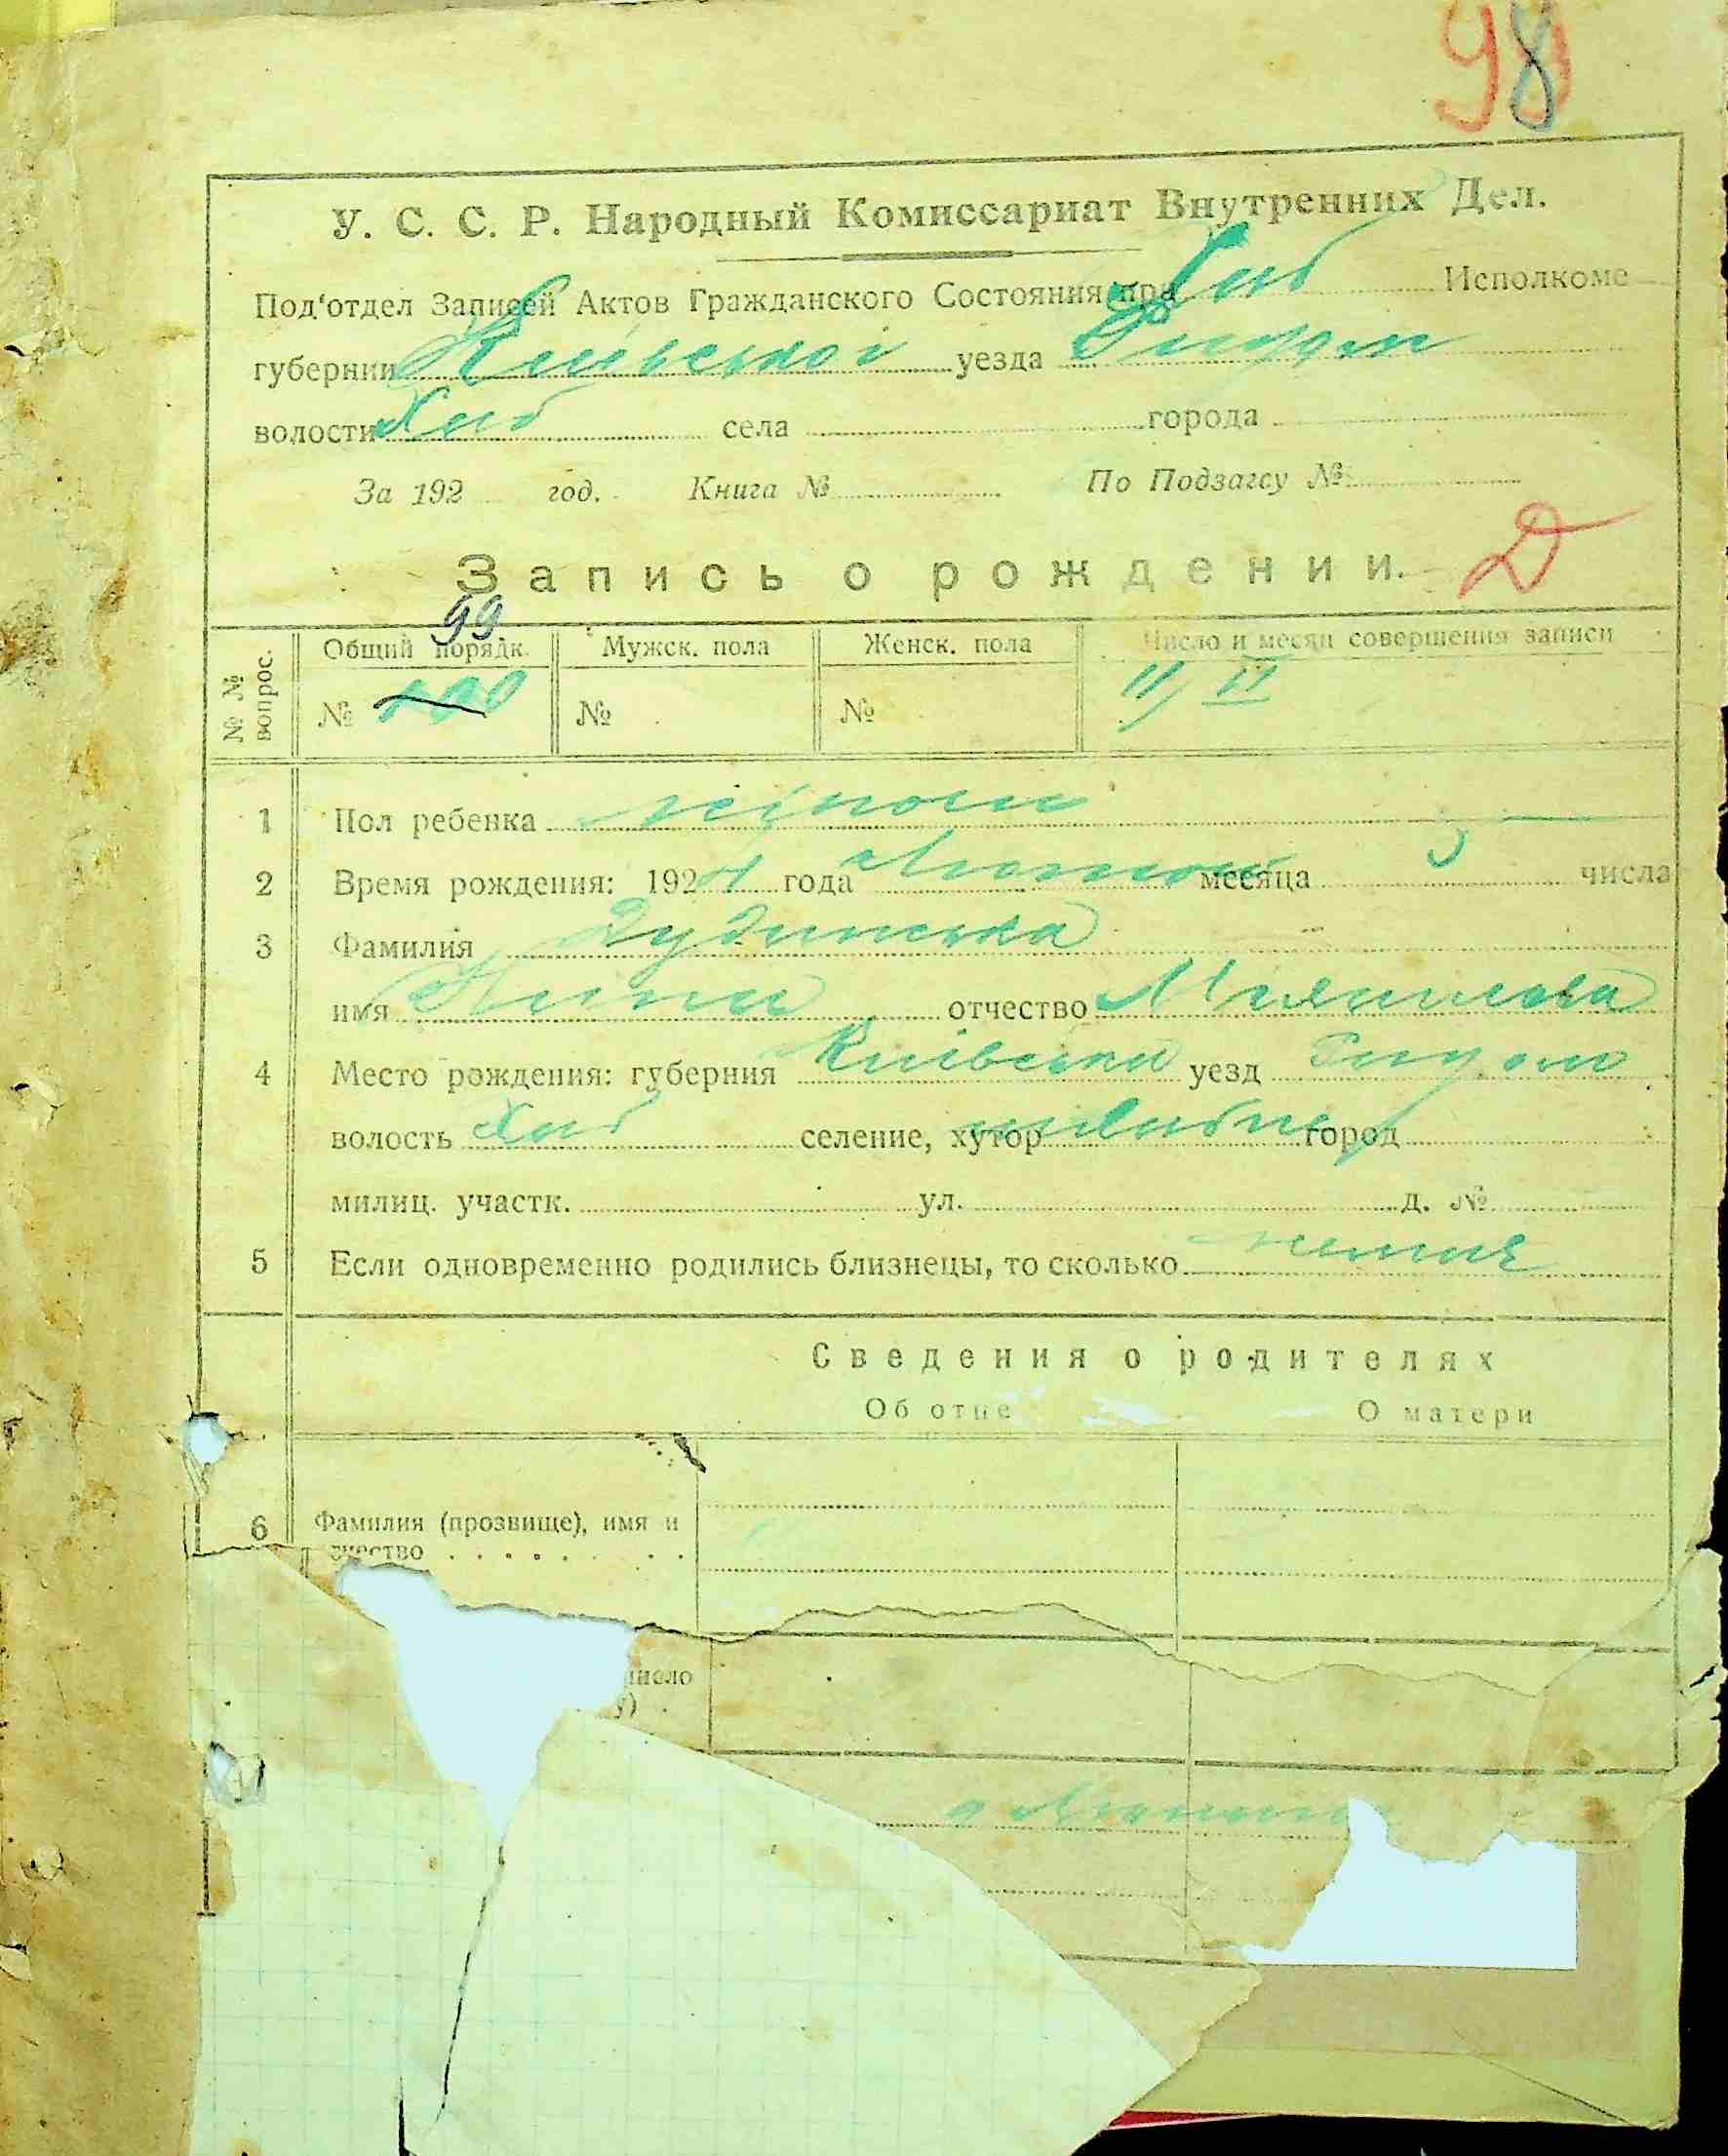 98
У. С. С. Р. Народный Комиссариат Внутренних Дел.
Под'отдел Записей Актов Гражданского Состояния при Хаб Исполкоме
губернии Київської уезда
волости Хаб села города
За 192 год. Книга № По Подзагсу №
Запись о рождении. Д
99
№ № вопрос. Общий порядк. Мужск. пола Женск. пола Число и месяц совершения записи
№ 100 № № 11/II
1 Пол ребенка жіночи
2 Время рождения: 1924 года Лютого месяца 5 числа
3 Фамилия Дудинська
имя Нина отчество
4 Место рождения: губерния Київська уезд
волость Хаб селение, хутор город
милиц. участк. ул. д. №
5 Если одновременно родились близнецы, то сколько немає
Сведения о родителях
Об отце О матери
6 Фамилия (прозвище), имя и
чество
число
у)